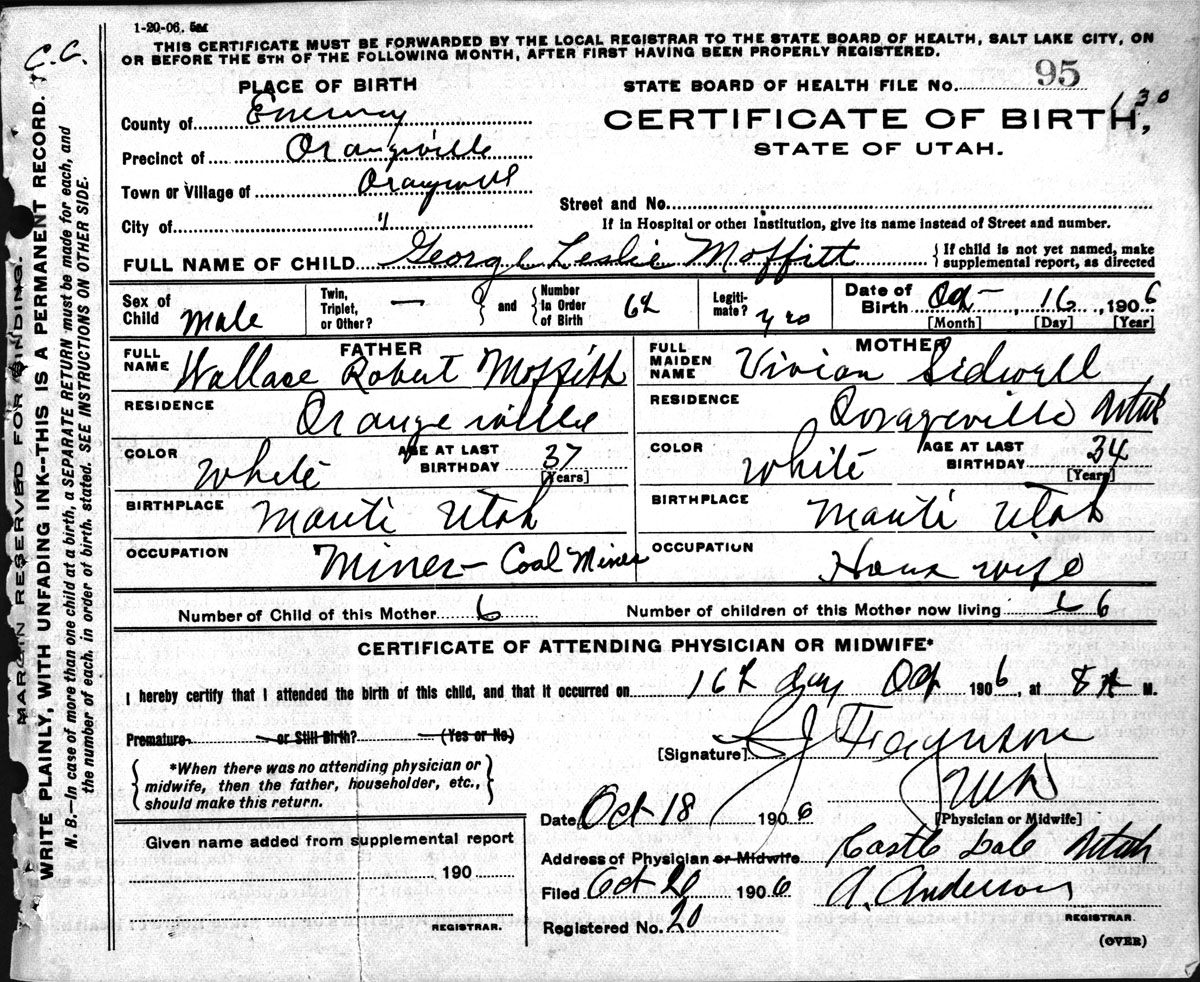 1-20-06.
C.C.
THIS CERTIFICATE MUST BE FORWARDED BY THE LOCAL REGISTRAR TO THE STATE BOARD OF HEALTH, SALT LAKE CITY, ON
OR BEFORE THE 5TH OF THE FOLLOWING MONTH, AFTER FIRST HAVING BEEN PROPERLY REGISTERED.
PLACE OF BIRTH
STATE BOARD OF HEALTH FILE No. 95
130
County of Emery
CERTIFICATE OF BIRTH,
Precinct of Orangeville
STATE OF UTAH.
Town or Village of
Street and No.
City of "
If in Hospital or other Institution, give its name instead of Street and number.
FULL NAME OF CHILD George Leslie Moffitt
{If child is not yet named, make
supplemental report, as directed
Sex of Child Male
Twin, Triplet, or Other? —
} and {
Number in Order of Birth
Legitimate?
Date of Birth Oct- 16, 1906
[Month] [Day] [Year]
FATHER
FULL NAME Wallace Robert Moffitt
MOTHER
FULL MAIDEN NAME Vivian Sidwell
RESIDENCE Orangeville
RESIDENCE Orangeville Utah
COLOR White
AGE AT LAST BIRTHDAY 37 [Years]
COLOR White
AGE AT LAST BIRTHDAY 34 [Years]
BIRTHPLACE Manti Utah
BIRTHPLACE Manti Utah
OCCUPATION Miner - Coal Miner
OCCUPATION House wife
Number of Child of this Mother 6
Number of children of this Mother now living 6
CERTIFICATE OF ATTENDING PHYSICIAN OR MIDWIFE*
I hereby certify that I attended the birth of this child, and that it occurred on 16th day Oct 1906, at 8 M.
Premature or Still Birth? (Yes or No)
[Signature]
*When there was no attending physician or
midwife, then the father, householder, etc.,
should make this return.
MD
[Physician or Midwife]
Date Oct 18 1906
Given name added from supplemental report
190
REGISTRAR.
Address of Physician or Midwife Castle Dale Utah
Filed Oct 20 1906 A. Anderson
REGISTRAR.
Registered No. 20
(OVER)
MARGIN RESERVED FOR BINDING.
WRITE PLAINLY, WITH UNFADING INK--THIS IS A PERMANENT RECORD.
N. B.—In case of more than one child at a birth, a SEPARATE RETURN must be made for each, and
the number of each, in order of birth, stated. SEE INSTRUCTIONS ON OTHER SIDE.